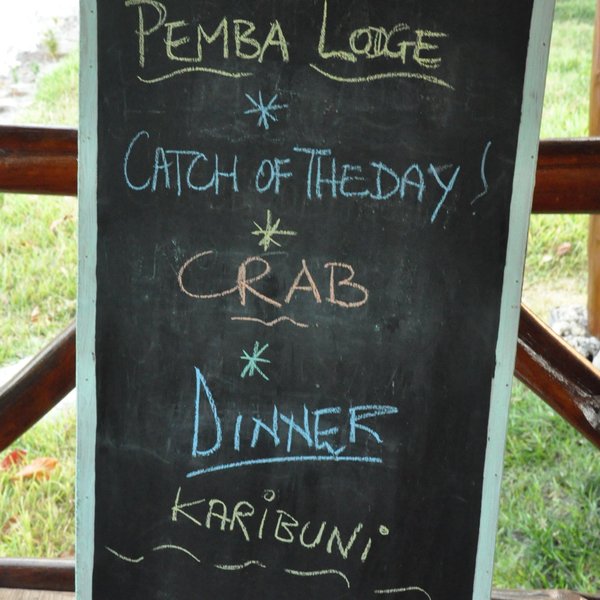 PEMBA LODGE
CATCH OF THE DAY!
CRAB
DINNER
KARIBUNI